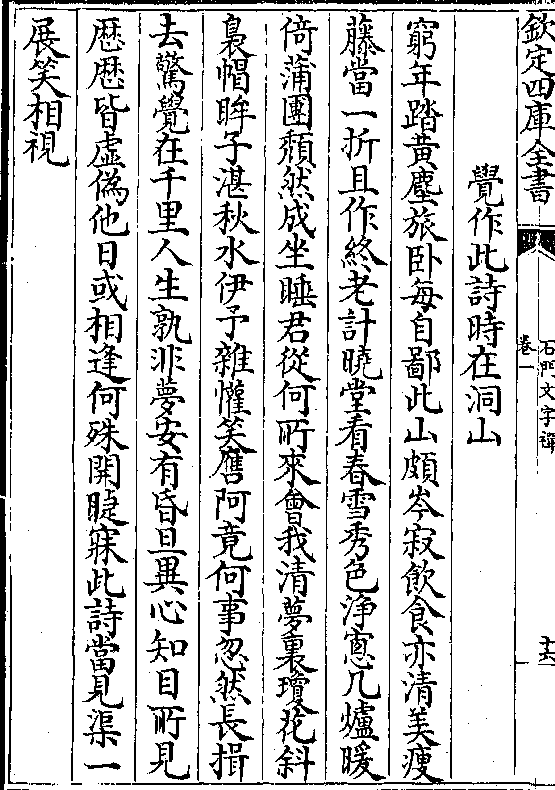 欽定四庫全書
石門文字禪
卷一
十六
覺作此詩時在洞山
窮年踏黃塵旅卧每自鄙此山頗岑寂飲食亦清美瘦
藤當一折且作終老計曉堂看春雪秀色浄窻几爐暖
倚蒲團頽然成坐睡君從何所來會我清夢裏瓊花斜
裊帽眸子湛秋水伊予雜懽笑譍阿竟何事忽然長揖
去驚覺在千里人生孰非夢安有昏旦異心知目所見
歴歴皆虛偽他日或相逢何殊開睫寐此詩當見渠一
展笑相視